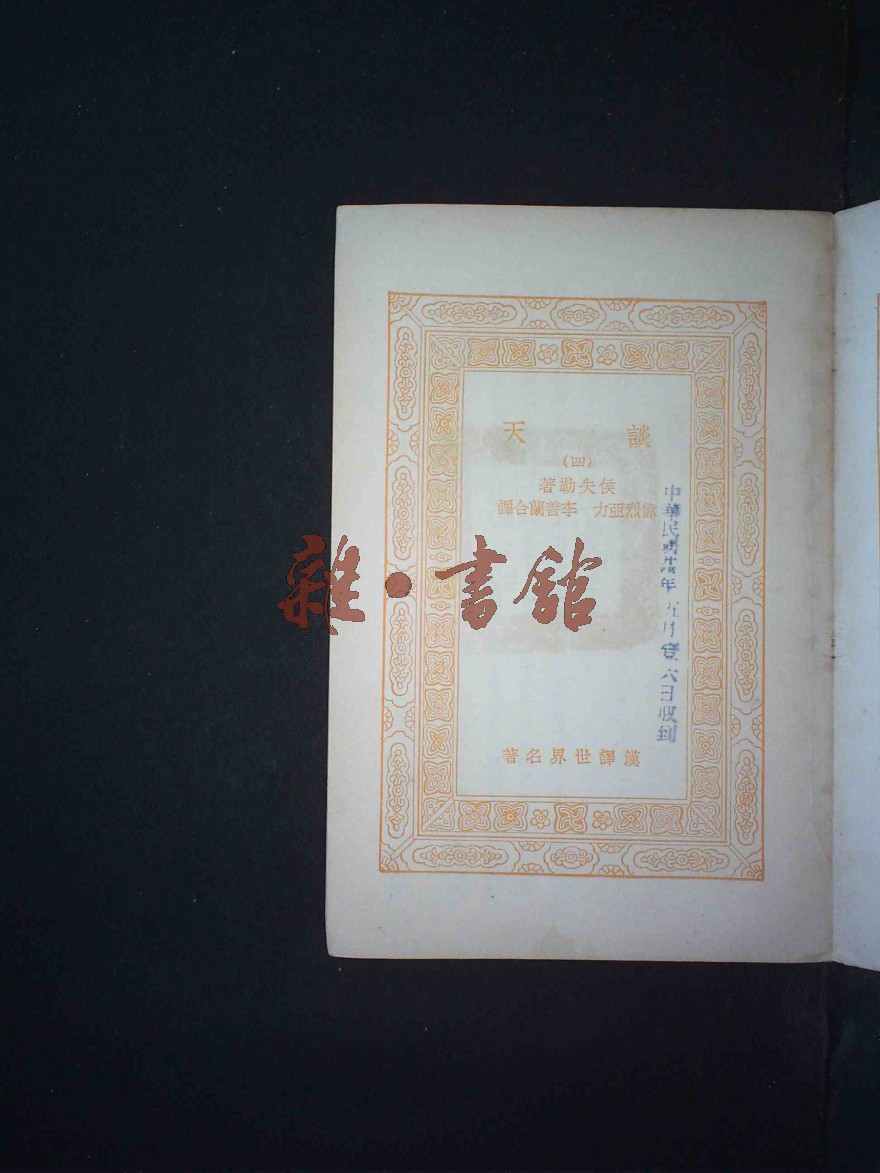 談天
(四)
侯失勒著
偉烈亞力 李善蘭合譯
漢譯世界名著
中華民國廿年五月壹六日收到
雜·書館